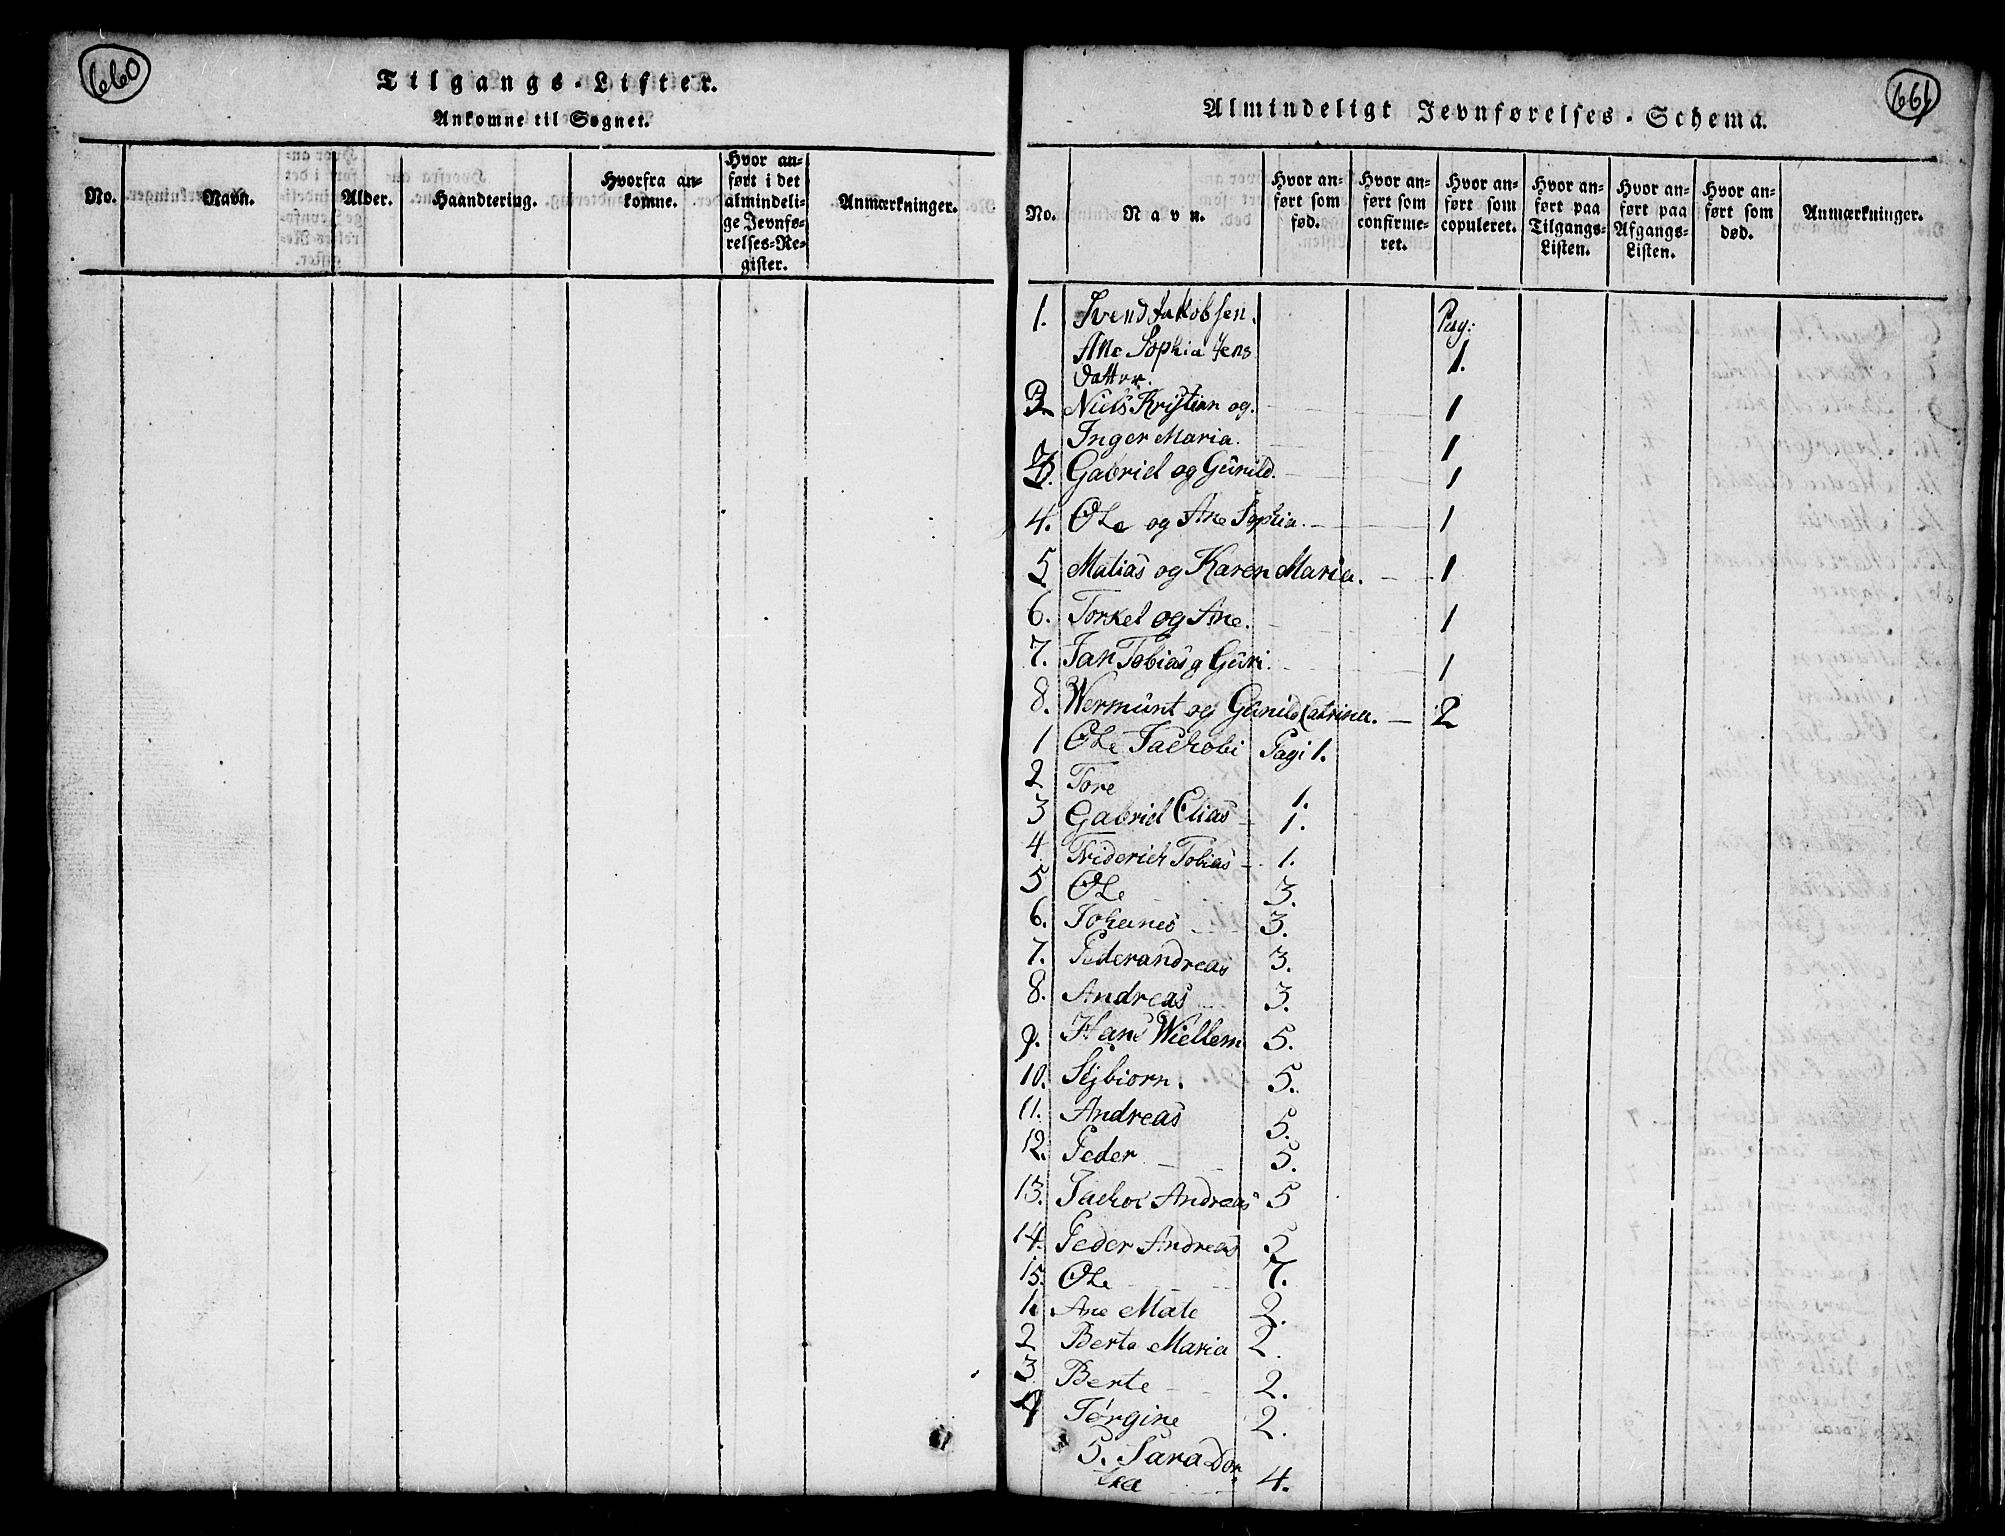 660
Tilgangs-Lister.
Ankomne til Sognet.
No.
Navn.
Alder.
Haandtering.
Hvorfra an-
komne.
Hvor an-
ført i det
almindeli-
ge Jevnfø-
relses-Re-
gister.
Anmærkninger.
661
Almindeligt Jevnførelses-Schema.
No.
Navn.
Hvor an-
ført som
fød.
Hvor an-
ført som
confirme-
ret.
Hvor an-
ført som
copuleret.
Hvor an-
ført paa
Tilgangs-
Listen.
Hvor an-
ført paa
Afgangs-
Listen.
Hvor an-
ført som
død.
Anmærkninger.
1. Svend Jakobsen. Pag:
Ane Sophia Jens 1.
datter.
2 Niels Kristian og 1
Inger Maria. 1
3. Gabriel og Günild. 1
4. Ole og Ane Sophia. 1
5 Matias og Karen Maria. 1
6. Torkel og Ane. 1
7. Jan Tobias og Güri. 1
8. Wermünt og Günild Catrina. 2
1 Ole Jackobi Pagi 1.
2 Tore 1.
3 Gabriel Elias 1.
4 Friderich Tobias 1.
5 Ole 3.
6. Johanes 3.
7. Pederandreas 3.
8. Andreas 3.
9. Hans Wiellem 5.
10. Stjbiorn. 5.
11. Andreas 5.
12. Peder 5.
13. Jachob Andreas 5
14. Peder Andreas 5
15. Ole 7.
1. Ane Mate 2.
2 Berta Maria 2.
3 Berte 2.
4 Jørgine 2.
5. Sara Dor
tea 4.